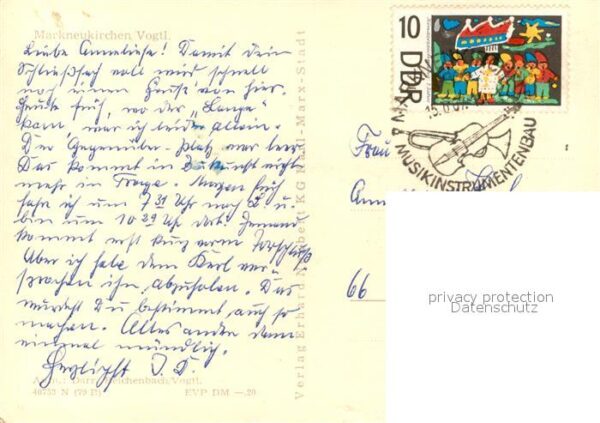 Markneukirchen Vogtl.
Liebe Anneliese! Damit Dein
Schließfach voll wird schnell
noch einen Gruß von hier.
Heute früh, wo der "Lange"
kam, war ich leider allein.
Der Gegenüber-Platz war leer
Das kommt in Zukunft nicht
mehr in Frage. Morgen früh
fahre ich um 7 31 Uhr nach Z. u.
bin um 10 29 Uhr dort. Jemand
kommt erst kurz vorm
Aber ich habe dem Kerl ver-
sprochen ihn abzuholen. Das
würdest Du bestimmt auch so
machen. Alles andere dann
einmal mündlich.
Herzlichst J. K.
Reichenbach/Vogtl.
N (79 B) EVP DM —.20
Verlag Erhard Neubert KG Karl-Marx-Stadt
10
DDR
MUSIKINSTRUMENTENBAU
Frau
66
privacy protection
Datenschutz